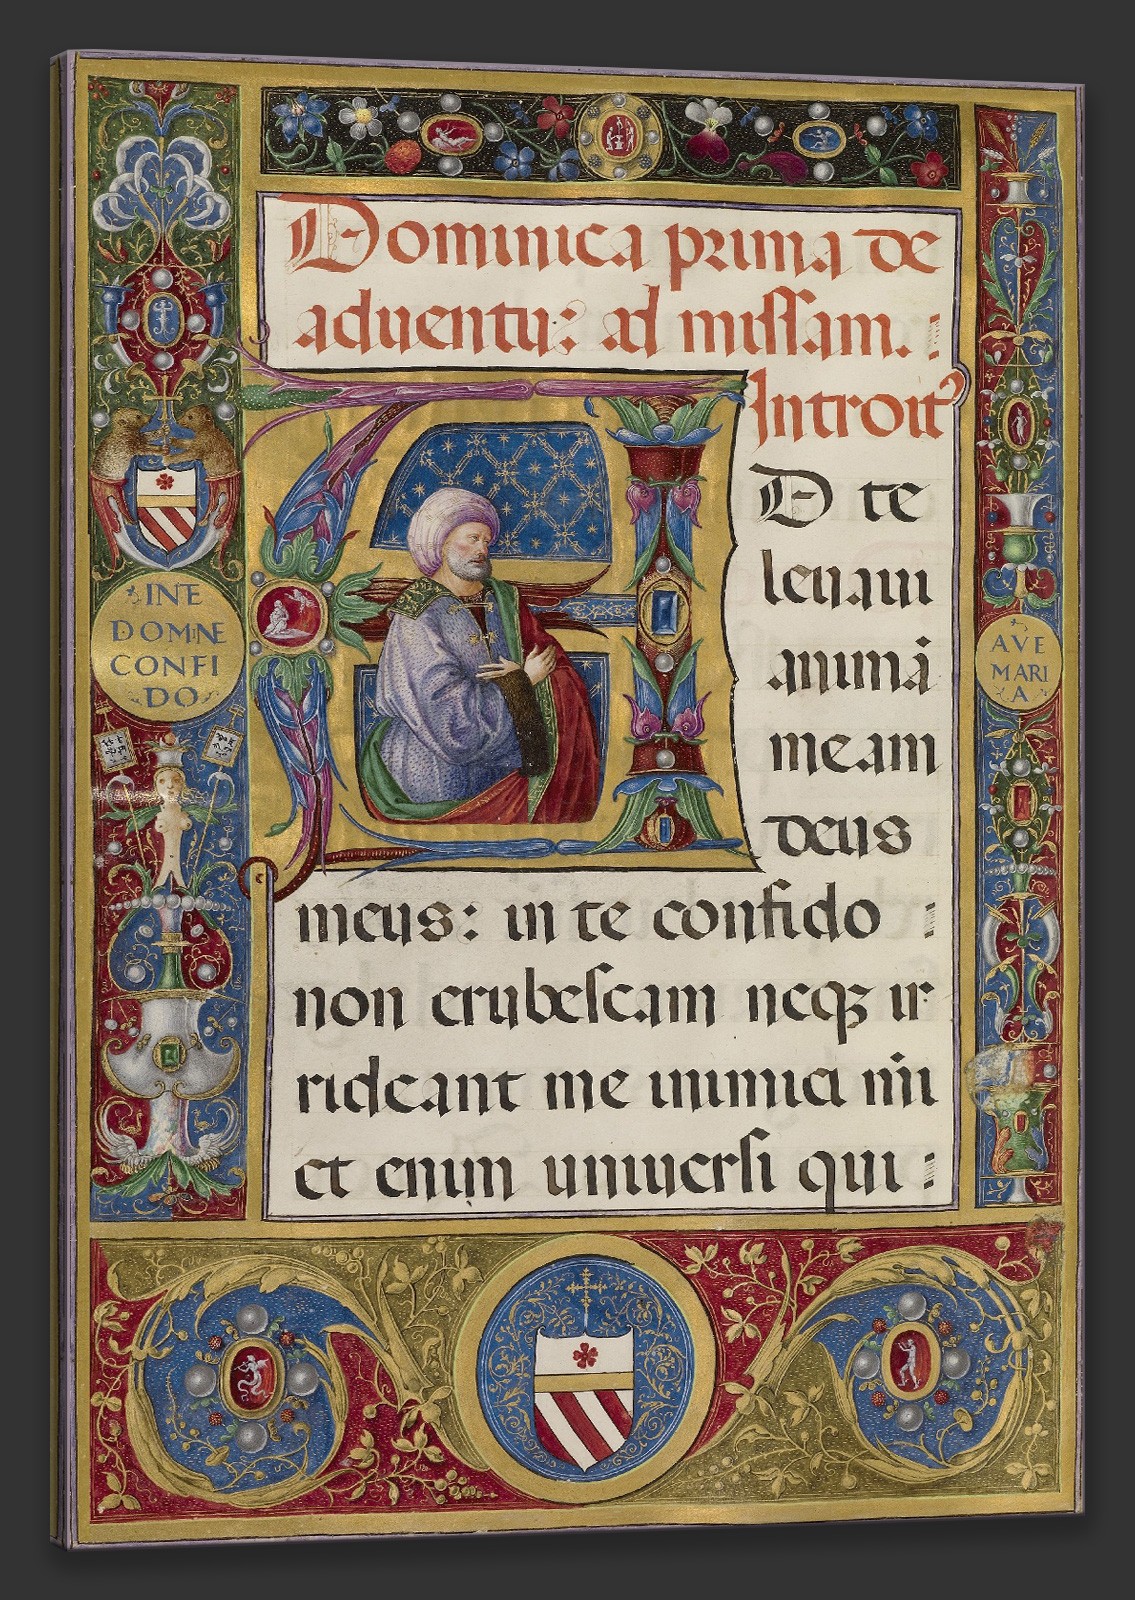 Dominica prima de
aduentu: ad missam.:
Introit9
AD te
leuaui
animā
meam
deus
meus: in te confido :
non erubescam neqȝ ir-
rideant me inimici mi
et enim uniuersi qui :
INTE
DOMINE
CONFI
DO
AVE
MARI
A